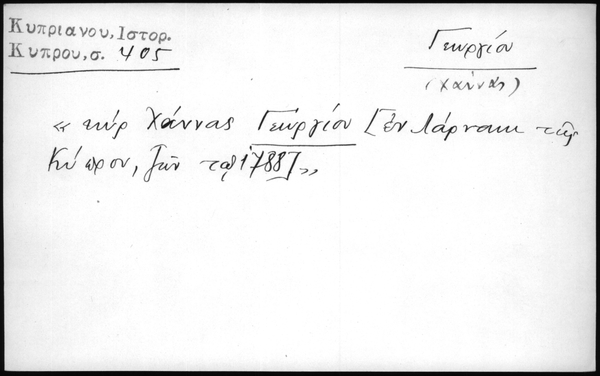 Κυπριανου, Ιστορ.
Κυπρου, σ. 405
Γεωργίου
(Χάννας)
« κύρ Χάννας Γεωργίου [ἐν Λάρνακι τῆς
Κύπρου, ζῶν τῷ 1788] »